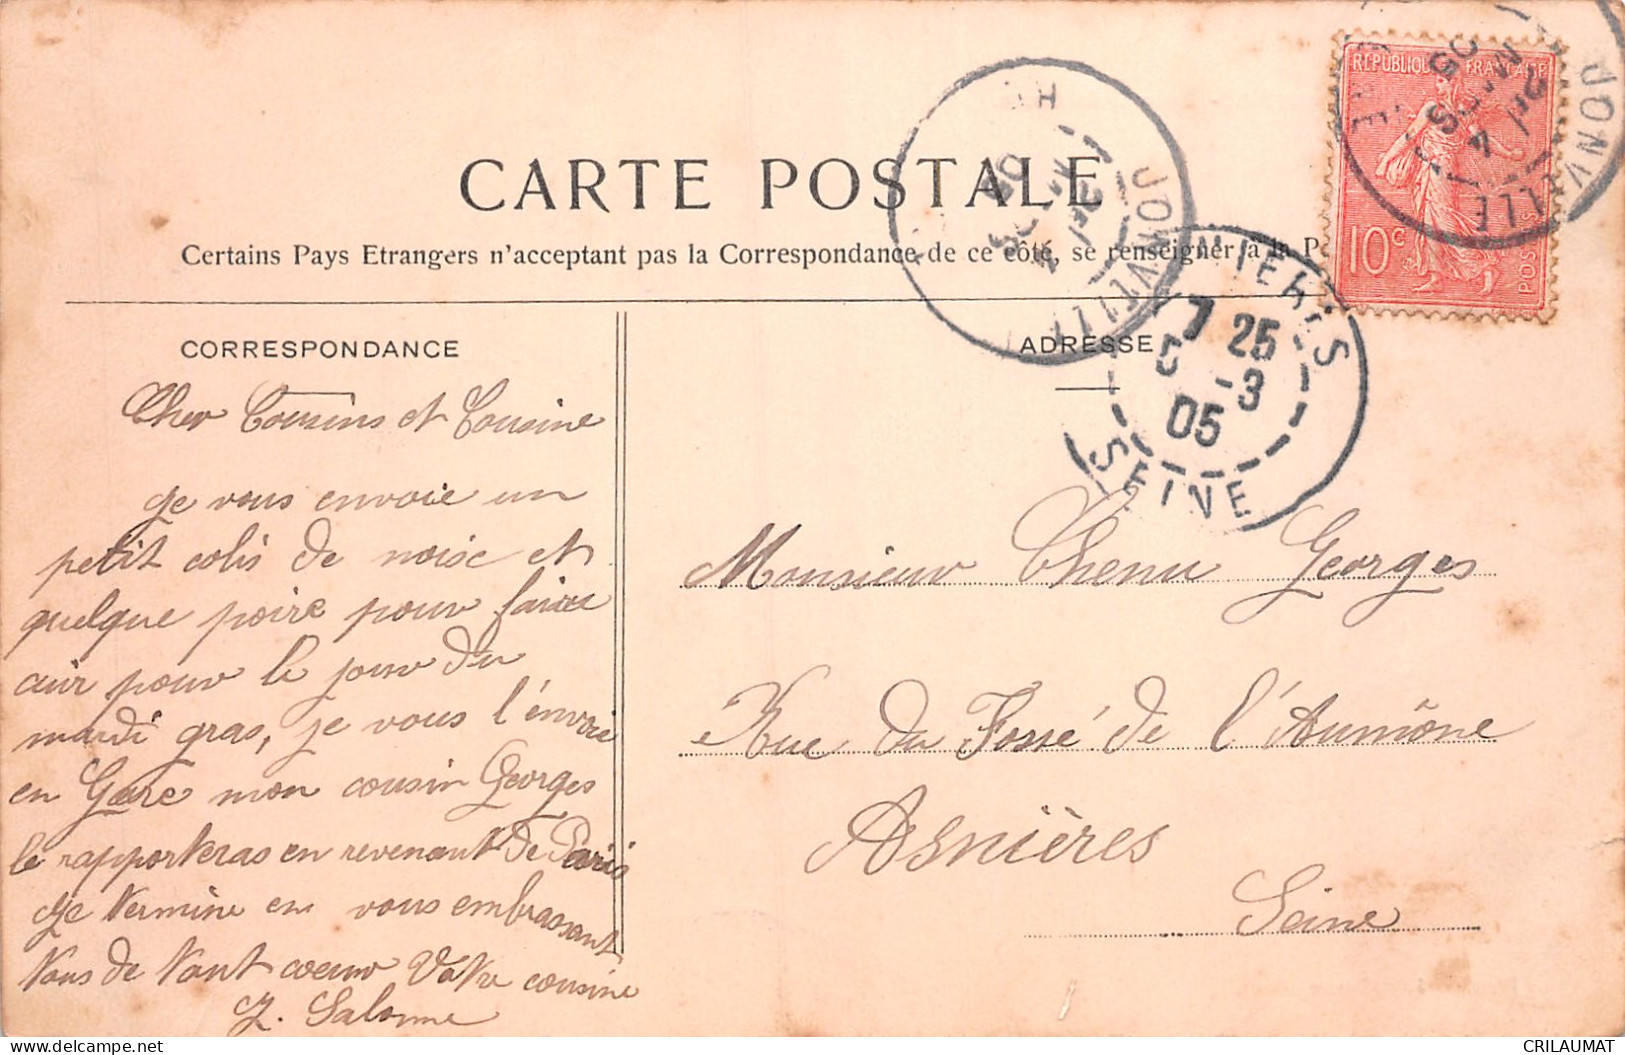 CARTE POSTALE
Certains Pays Etrangers n'acceptant pas la Correspondance de ce côté, se renseigner à la P
REPUBLIQUE FRANÇAISE
10c
POSTES
JONVILLE
4
05
JONVILLE
ASNIERES
7 25
5 -3
05
SEINE
CORRESPONDANCE
ADRESSE
Cher Cousins et Cousine
Je vous envoie un
petit colis de noix et
quelque poire pour faire
cuir pour le jour du
mardi gras, je vous l'envoie
en Gare mon cousin Georges
le rapporteras en revenant de Paris
Je termine en vous embrassant
tous de tout coeur Votre cousine
Z. Salomé
Monsieur Chenu Georges
Rue du Fossé de l'Aumône
Asnières
Seine
CRILAUMAT